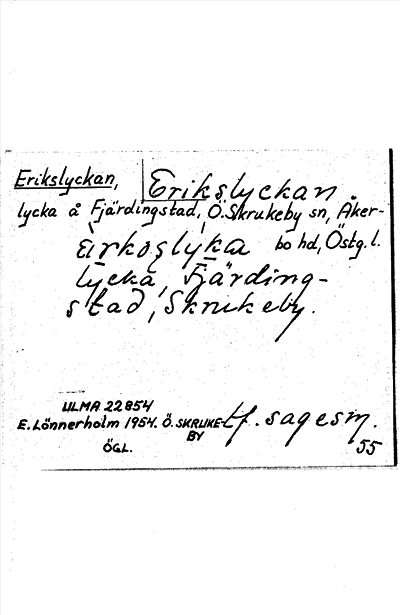 Erikslyckan, Erikslyckan
lycka å Fjärdingstad, Ö. Skrukeby sn, Åker-
bo hd, Östg. l.
lycka, Fjärding-
stad, Skrukeby.
ULMA 22854
E. Lönnerholm 1954. Ö. SKRUKE-
BY
ÖGL.
tf. sagesm.
55